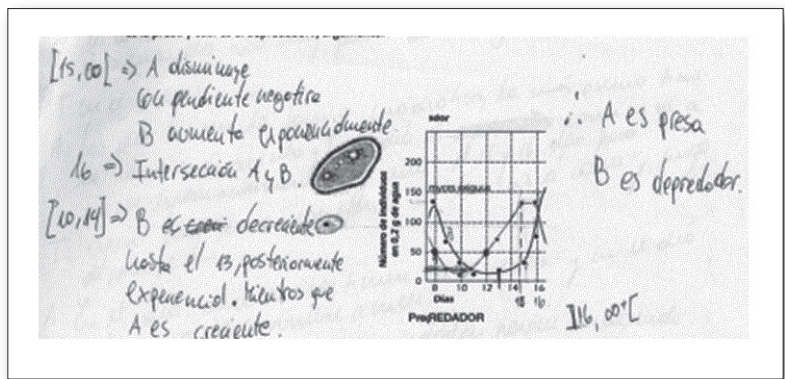 [15, ∞[ => A disminuye
con pendiente negativa
B aumenta exponencialmente
16 => Intersección A y B.
[10,14] => B es decreciente
hasta el 13, posteriormente
exponencial. Mientras que
A es creciente.
sador
Número de individuos
en 0,2 g de agua
200
150
100
50
0
8
10
12
14
16
Días
15
16
PreREDADOR
∴ A es presa
B es depredador.
]16, ∞+[